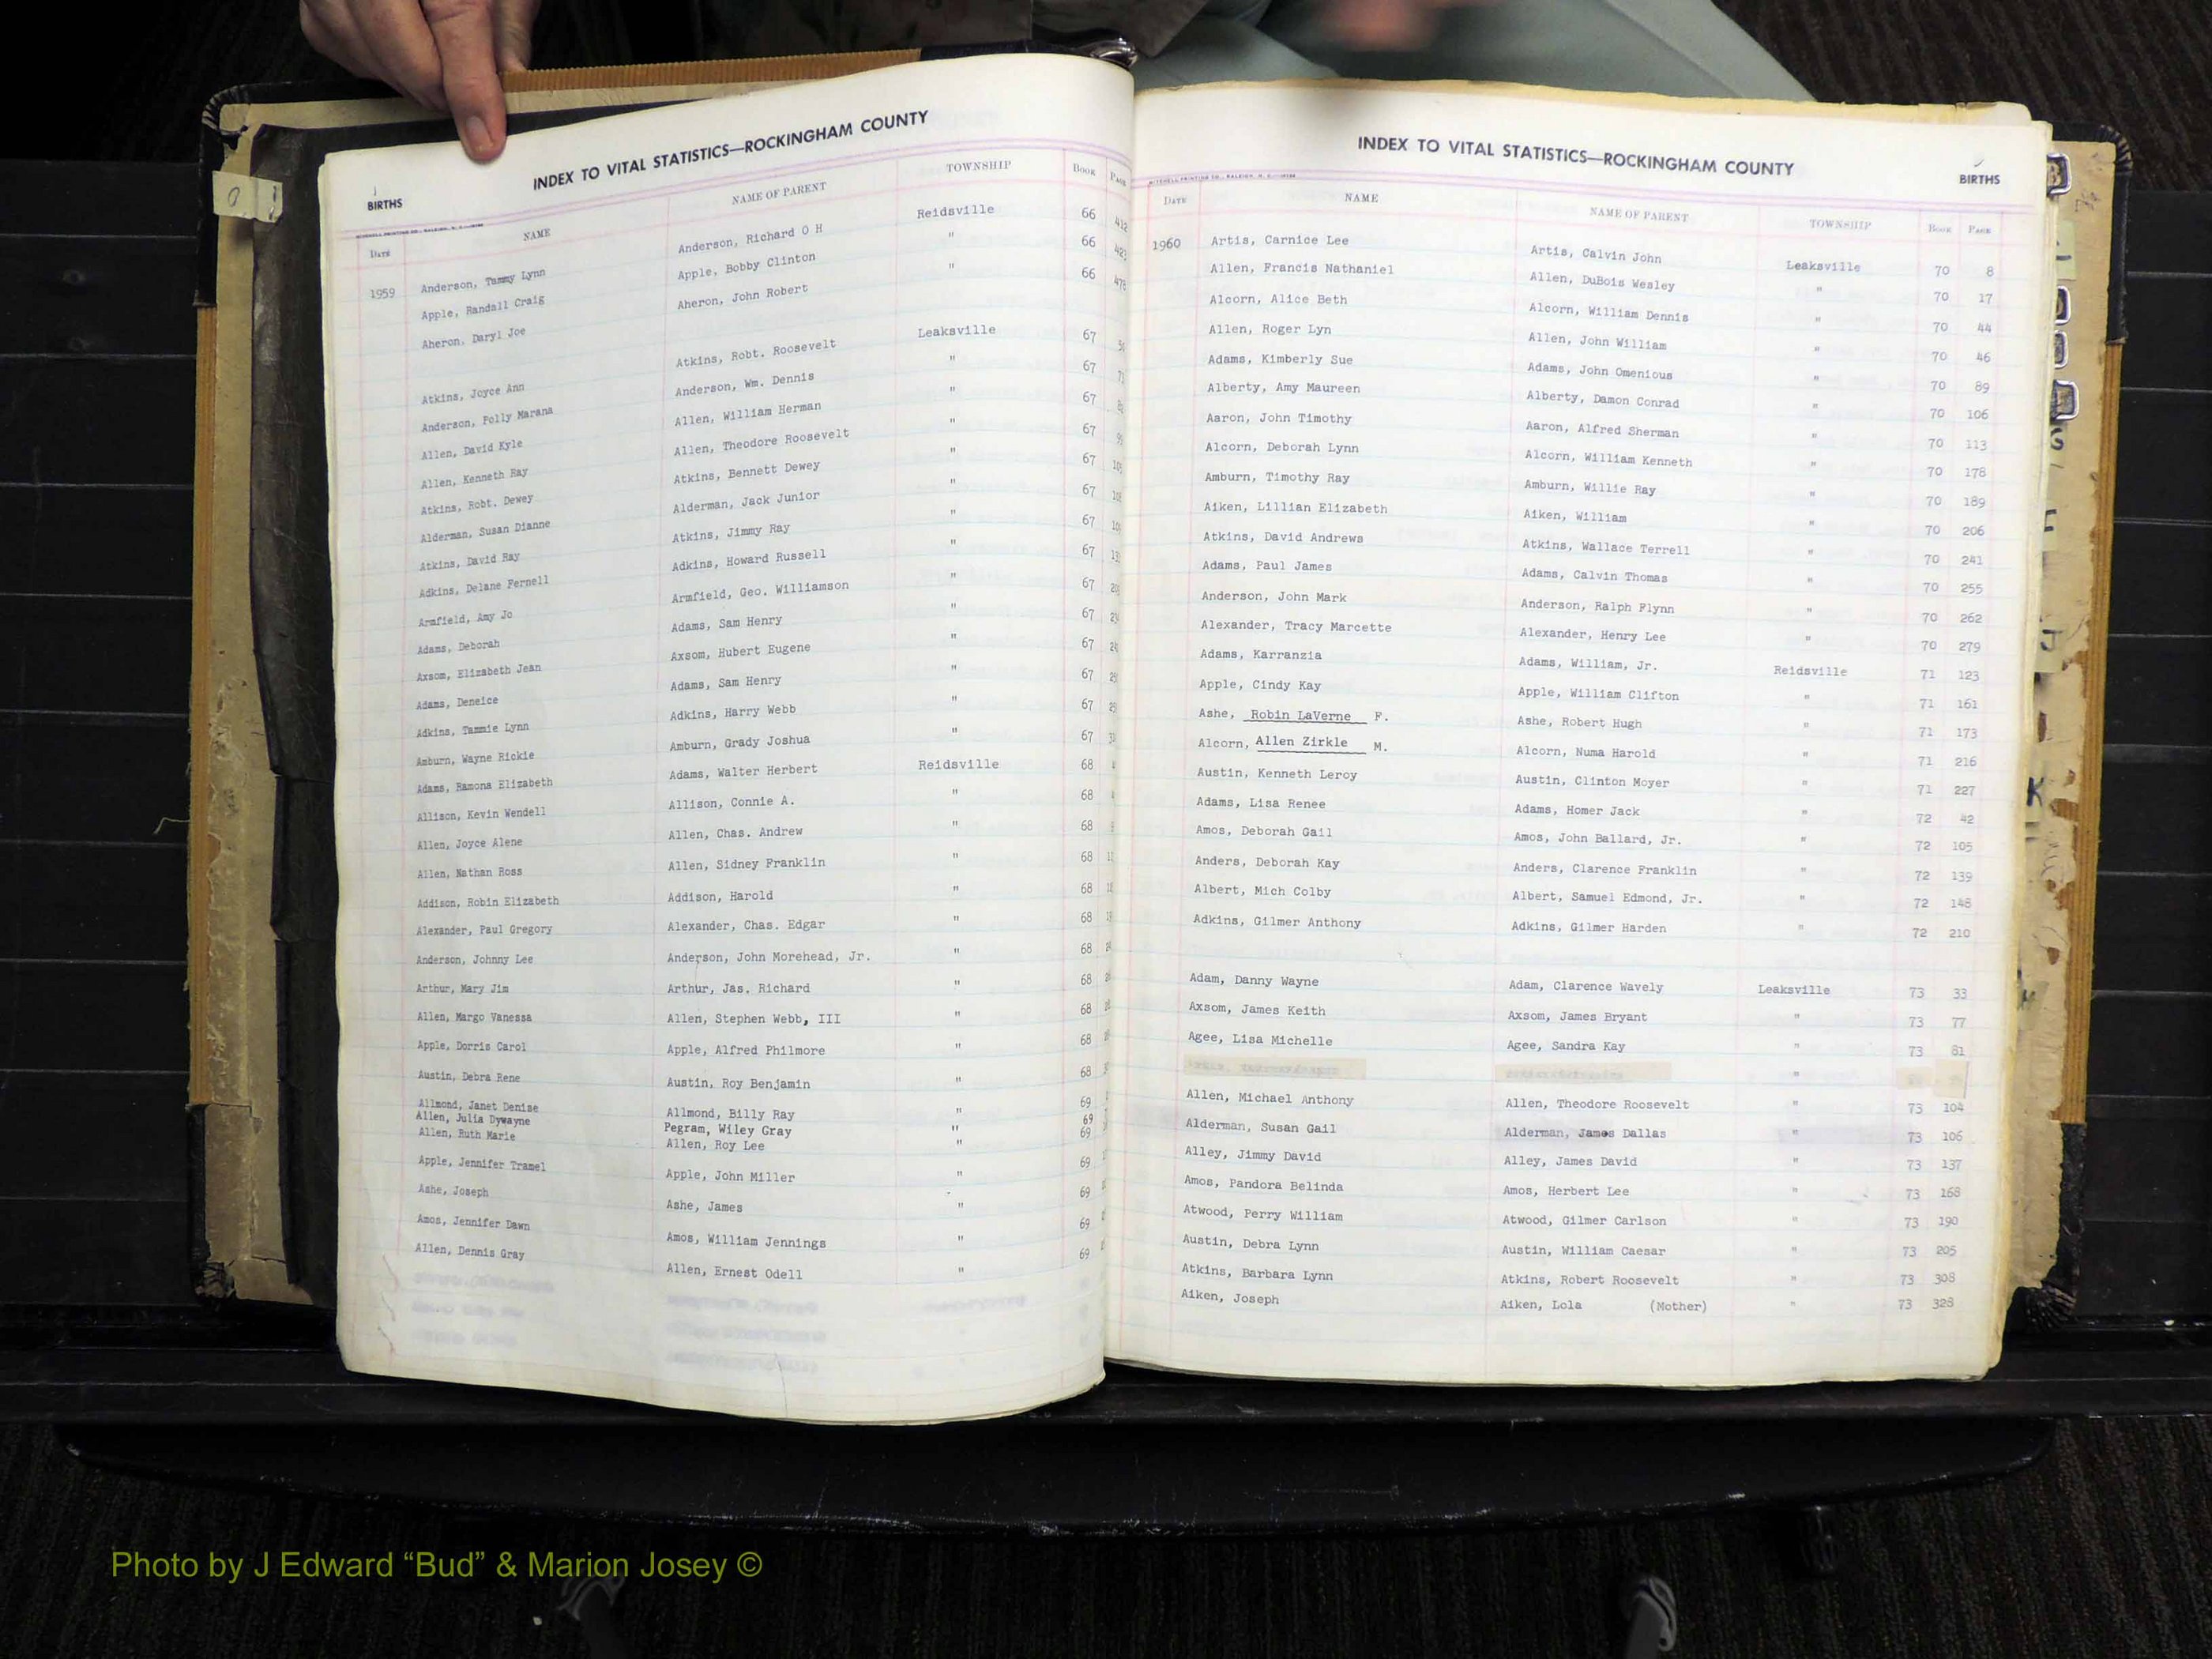 INDEX TO VITAL STATISTICS—ROCKINGHAM COUNTY
BIRTHS
DATE NAME NAME OF PARENT TOWNSHIP BOOK PAGE
1959 Anderson, Tammy Lynn Anderson, Richard O H Reidsville 66 412
Apple, Randall Craig Apple, Bobby Clinton " 66
Aheron, Daryl Joe Aheron, John Robert " 66
Atkins, Joyce Ann Atkins, Robt. Roosevelt Leaksville 67
Anderson, Polly Marana Anderson, Wm. Dennis " 67
Allen, David Kyle Allen, William Herman " 67
Allen, Kenneth Ray Allen, Theodore Roosevelt " 67
Atkins, Robt. Dewey Atkins, Bennett Dewey " 67
Alderman, Susan Dianne Alderman, Jack Junior " 67
Atkins, David Ray Atkins, Jimmy Ray " 67
Adkins, Delane Fernell Adkins, Howard Russell " 67
Armfield, Amy Jo Armfield, Geo. Williamson " 67
Adams, Deborah Adams, Sam Henry " 67
Axsom, Elizabeth Jean Axsom, Hubert Eugene " 67
Adams, Deneice Adams, Sam Henry " 67
Adkins, Tammie Lynn Adkins, Harry Webb " 67
Amburn, Wayne Rickie Amburn, Grady Joshua " 67
Adams, Ramona Elizabeth Adams, Walter Herbert Reidsville 68
Allison, Kevin Wendell Allison, Connie A. " 68
Allen, Joyce Alene Allen, Chas. Andrew " 68
Allen, Nathan Ross Allen, Sidney Franklin " 68
Addison, Robin Elizabeth Addison, Harold " 68
Alexander, Paul Gregory Alexander, Chas. Edgar " 68
Anderson, Johnny Lee Anderson, John Morehead, Jr. " 68
Arthur, Mary Jim Arthur, Jas. Richard " 68
Allen, Margo Vanessa Allen, Stephen Webb, III " 68
Apple, Dorris Carol Apple, Alfred Philmore " 68
Austin, Debra Rene Austin, Roy Benjamin " 68
Allmond, Janet Denise Allmond, Billy Ray " 69
Allen, Julia Dywayne Pegram, Wiley Gray " 69
Allen, Ruth Marie Allen, Roy Lee " 69
Apple, Jennifer Tramel Apple, John Miller " 69
Ashe, Joseph Ashe, James " 69
Amos, Jennifer Dawn Amos, William Jennings " 69
Allen, Dennis Gray Allen, Ernest Odell " 69
INDEX TO VITAL STATISTICS—ROCKINGHAM COUNTY
BIRTHS
DATE NAME NAME OF PARENT TOWNSHIP BOOK PAGE
1960 Artis, Carnice Lee Artis, Calvin John Leaksville 70 8
Allen, Francis Nathaniel Allen, DuBois Wesley " 70 17
Alcorn, Alice Beth Alcorn, William Dennis " 70 44
Allen, Roger Lyn Allen, John William " 70 46
Adams, Kimberly Sue Adams, John Omenious " 70 89
Alberty, Amy Maureen Alberty, Damon Conrad " 70 106
Aaron, John Timothy Aaron, Alfred Sherman " 70 113
Alcorn, Deborah Lynn Alcorn, William Kenneth " 70 178
Amburn, Timothy Ray Amburn, Willie Ray " 70 189
Aiken, Lillian Elizabeth Aiken, William " 70 206
Atkins, David Andrews Atkins, Wallace Terrell " 70 241
Adams, Paul James Adams, Calvin Thomas " 70 255
Anderson, John Mark Anderson, Ralph Flynn " 70 262
Alexander, Tracy Marcette Alexander, Henry Lee " 70 279
Adams, Karranzia Adams, William, Jr. Reidsville 71 123
Apple, Cindy Kay Apple, William Clifton " 71 161
Ashe, Robin LaVerne F. Ashe, Robert Hugh " 71 173
Alcorn, Allen Zirkle M. Alcorn, Numa Harold " 71 216
Austin, Kenneth Leroy Austin, Clinton Moyer " 71 227
Adams, Lisa Renee Adams, Homer Jack " 72 42
Amos, Deborah Gail Amos, John Ballard, Jr. " 72 105
Anders, Deborah Kay Anders, Clarence Franklin " 72 139
Albert, Mich Colby Albert, Samuel Edmond, Jr. " 72 148
Adkins, Gilmer Anthony Adkins, Gilmer Harden " 72 210
Adam, Danny Wayne Adam, Clarence Wavely Leaksville 73 33
Axsom, James Keith Axsom, James Bryant " 73 77
Agee, Lisa Michelle Agee, Sandra Kay " 73 81
"
Allen, Michael Anthony Allen, Theodore Roosevelt " 73 104
Alderman, Susan Gail Alderman, James Dallas " 73 106
Alley, Jimmy David Alley, James David " 73 137
Amos, Pandora Belinda Amos, Herbert Lee " 73 168
Atwood, Perry William Atwood, Gilmer Carlson " 73 190
Austin, Debra Lynn Austin, William Caesar " 73 205
Atkins, Barbara Lynn Atkins, Robert Roosevelt " 73 308
Aiken, Joseph Aiken, Lola (Mother) " 73 328
Photo by J Edward “Bud” & Marion Josey ©